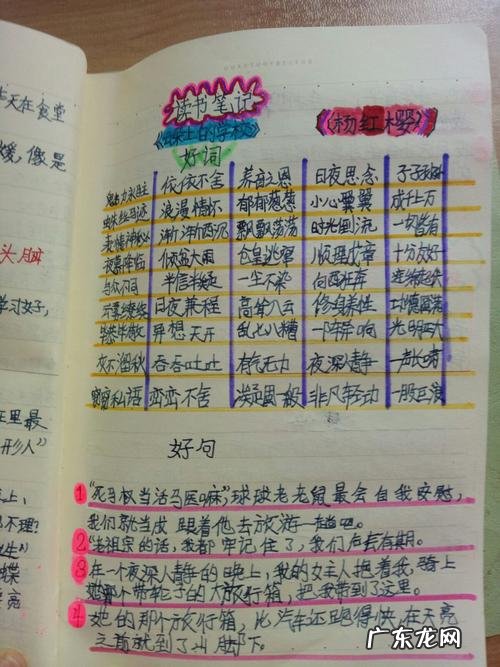 天在食堂
暖,像是
头脑
学习女子,
在里最
形人"
上,
不理?
蝶
读书笔记
上的学校》
《杨红樱》
好词
依依不舍 养育之恩 日夜思念
蛛丝马迹 浪漫情怀 郁郁葱葱 小心翼翼 成千上万
飘飘荡荡 时光倒流 一切皆有
夜幕降临 倾盆大雨 仓皇逃窜 十分友好
半信半疑 一尘不染 向西狂奔
日夜兼程 高耸入云 修身养性
异想天开 乱七八糟 一阵异响 光明正大
衣不溜秋 吞吞吐吐 有气无力 夜深人静
窃窃私语 恋恋不舍 非凡轻功 一股巨浪
好句
1 "死马权当活马医嘛"球球老老鼠最会自我安慰,
我们就当成跟着他去放游一趟吧。
2 "老祖宗的话,我都牢记住了,我们后会有期。
3 在一个夜深人静的晚上,我的女主人抱着我,骑上
她那个带轮子的大旅行箱,把我带到了这里。
4 她的那个旅行箱,比汽车还跑得快,在天亮
之前就到了山脚下。
广东龙网